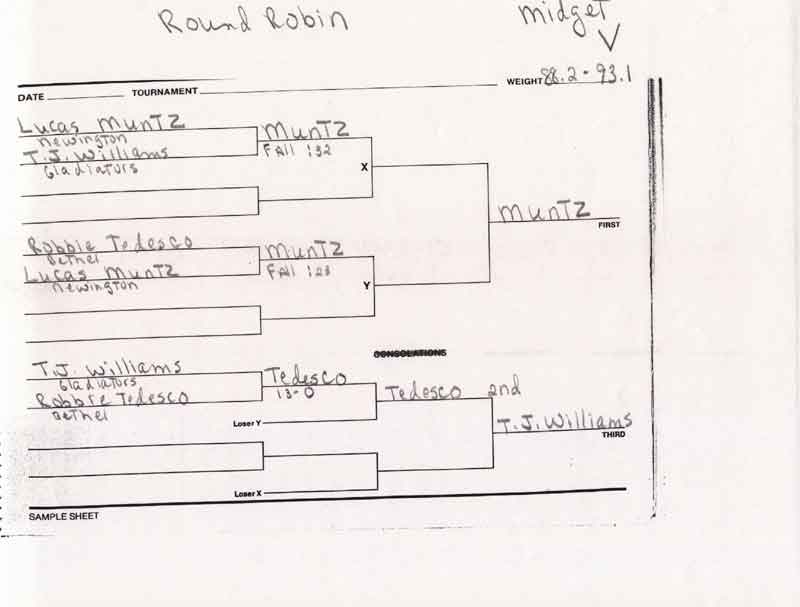 Round Robin
midget
V
DATE TOURNAMENT WEIGHT 88.2 - 93.1
Lucas MunTZ
newington
MunTZ
Fall :32
T.J. Williams
Gladiators
X
MunTZ
FIRST
Robbie Tedesco
Bethel
MunTZ
Fall :23
Lucas MunTZ
newington
Y
CONSOLATIONS
T.J. Williams
Gladiators
Tedesco
13-0
Robbie Tedesco
Bethel
Loser Y
Tedesco 2nd
T.J. Williams
THIRD
Loser X
SAMPLE SHEET